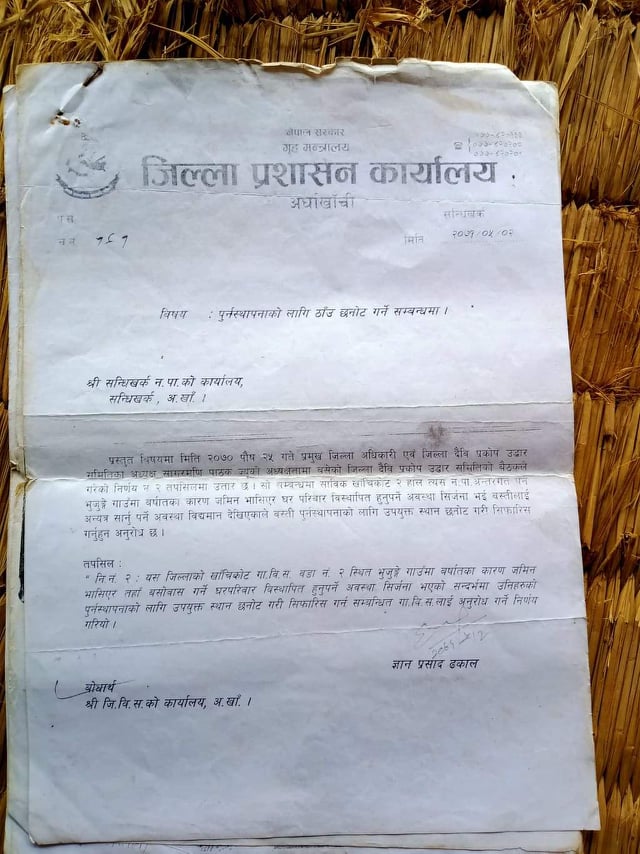 नेपाल सरकार
गृह मन्त्रालय
जिल्ला प्रशासन कार्यालय
अर्घाखाँची
सन्धिखर्क
प.सं.
च.नं. १८१
मिति २०७१/०५/०२
विषय : पुर्नस्थापनाको लागि ठाँउ छनोट गर्ने सम्बन्धमा ।
श्री सन्धिखर्क न.पा.को कार्यालय,
सन्धिखर्क, अ.खाँ. ।
प्रस्तुत विषयमा मिति २०७० पौष २५ गते प्रमुख जिल्ला अधिकारी एवं जिल्ला दैवि प्रकोप उद्धार
समितिका अध्यक्ष सागरमणि पाठक ज्यूको अध्यक्षतामा बसेको जिल्ला दैवि प्रकोप उद्धार समितिको बैठकले
गरेको निर्णय नं २ तपसिलमा उतार छ । सो सम्बन्धमा साविक खाँचिकोट २ हाल त्यस न.पा.अन्तरगत पर्ने
भुजुङ्गे गाउँमा वर्षातका कारण जमिन भासिएर घर परिवार विस्थापित हुनुपर्ने अवस्था सिर्जना भई वस्तीलाई
अन्यत्र सार्नु पर्ने अवस्था विद्यमान देखिएकाले वस्ती पुर्नस्थापनाको लागि उपयुक्त स्थान छनोट गरी सिफारिस
गर्नुहुन अनुरोध छ ।
तपसिल :
" नि.नं. २ : यस जिल्लाको खाँचिकोट गा.वि.स. वडा नं. २ स्थित भुजुङ्गे गाउँमा वर्षातका कारण जमिन
भासिएर तहाँ बसोवास गर्ने घरपरिवार विस्थापित हुनुपर्ने अवस्था सिर्जना भएको सन्दर्भमा उनिहरुको
पुर्नस्थापनाको लागि उपयुक्त स्थान छनोट गरी सिफारिस गर्न सम्बन्धित गा.वि.स.लाई अनुरोध गर्ने निर्णय
गरियो ।
ज्ञान प्रसाद ढकाल
बोधार्थ
श्री जि.वि.स.को कार्यालय, अ.खाँ. ।